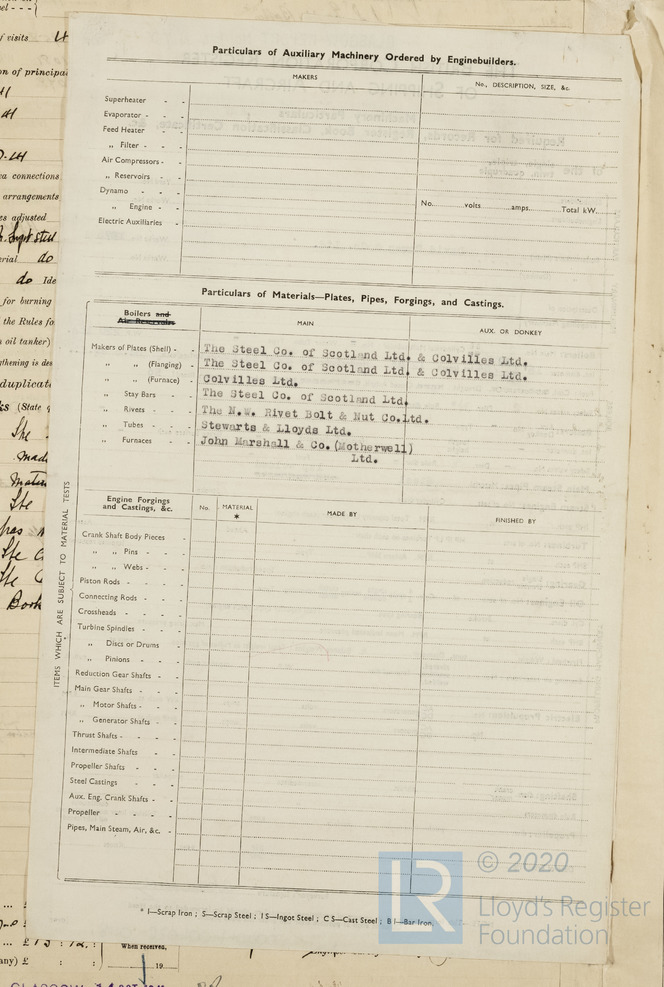 f visits
on of principal
D. LH
ea connections
arrangements
es adjusted
erial do
do Ide
for burning
the Rules fo
oil tanker)
gthening is des
duplicat
(State
She
made
She
has
She
She
Book
Particulars of Auxiliary Machinery Ordered by Enginebuilders.
MAKERS
No., DESCRIPTION, SIZE, &c.
Superheater - -
Evaporator - -
Feed Heater - -
„ Filter - -
Air Compressors - -
„ Reservoirs - -
Dynamo - - -
„ Engine - - No. volts amps. Total kW.
Electric Auxiliaries -
Particulars of Materials—Plates, Pipes, Forgings, and Castings.
Boilers and
Air Reservoirs
MAIN
AUX. OR DONKEY
Makers of Plates (Shell) - - The Steel Co. of Scotland Ltd. & Colvilles Ltd.
„ „ (Flanging) - The Steel Co. of Scotland Ltd. & Colvilles Ltd.
„ „ (Furnace) - Colvilles Ltd.
„ Stay Bars - - The Steel Co. of Scotland Ltd.
„ Rivets - - The N.W. Rivet Bolt & Nut Co.Ltd.
„ Tubes - - Stewarts & Lloyds Ltd.
„ Furnaces - John Marshall & Co.(Motherwell)
Ltd.
ITEMS WHICH ARE SUBJECT TO MATERIAL TESTS
Engine Forgings
and Castings, &c.
No.
MATERIAL
*
MADE BY
FINISHED BY
Crank Shaft Body Pieces -
„ „ Pins - -
„ „ Webs - -
Piston Rods - - -
Connecting Rods - -
Crossheads - - -
Turbine Spindles - -
„ Discs or Drums -
„ Pinions - -
Reduction Gear Shafts - -
Main Gear Shafts - - -
„ Motor Shafts - -
„ Generator Shafts - -
Thrust Shafts - - -
Intermediate Shafts - -
Propeller Shafts - -
Steel Castings - -
Aux. Eng. Crank Shafts - -
Propeller - - - -
Pipes, Main Steam, Air, &c. -
* I—Scrap Iron ; S—Scrap Steel ; I S—Ingot Steel ; C S—Cast Steel ; B I—Bar Iron.
© 2020
Lloyd's Register
Foundation
LR
When received,
any) £ : :
19
GLASGOW